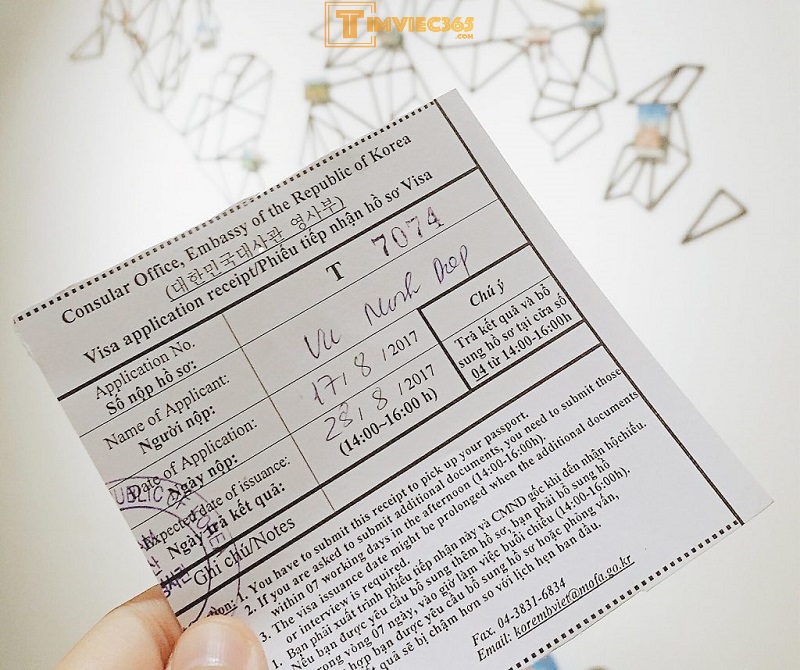 TIMVIEC365
.COM
Consular Office, Embassy of the Republic of Korea
(대한민국대사관 영사부)
Visa application receipt/Phiếu tiếp nhận hồ sơ Visa
Application No.
Số nộp hồ sơ:
T 7074
Name of Applicant:
Người nộp:
Vu Diep
Date of Application:
Ngày nộp:
17/8/2017
Expected date of issuance:
Ngày trả kết quả:
28/8/2017
(14:00~16:00 h)
Chú ý
Trả kết quả và bổ
sung hồ sơ tại cửa số
04 từ 14:00-16:00h
Ghi chú/Notes
1. You have to submit this receipt to pick up your passport.
2. If you are asked to submit additional documents, you need to submit those
within 07 working days in the afternoon (14:00-16:00h).
3. The visa issuance date might be prolonged when the additional documents
or interview is required.
1. Bạn phải xuất trình phiếu tiếp nhận này và CMND gốc khi đến nhận hộ chiếu.
Nếu bạn được yêu cầu bổ sung thêm hồ sơ, bạn phải bổ sung hồ sơ
trong vòng 07 ngày, vào giờ làm việc buổi chiều (14:00-16:00h).
hợp bạn được yêu cầu bổ sung hồ sơ hoặc phỏng vấn,
quả sẽ bị chậm hơn so với lịch hẹn ban đầu.
Fax. 04-3831-6834
Email: korembviet@mofa.go.kr